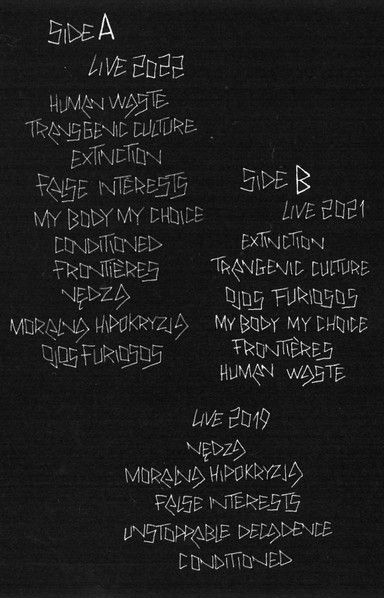 SIDE A
LIVE 2022
HUMAN WASTE
TRANSGENIC CULTURE
EXTINCTION
FALSE INTERESTS
MY BODY MY CHOICE
CONDITIONED
FRONTIÈRES
NĘDZA
MORALNA HIPOKRYZJA
OJOS FURIOSOS
SIDE B
LIVE 2021
EXTINCTION
TRANGENIC CULTURE
OJOS FURIOSOS
MY BODY MY CHOICE
FRONTIÈRES
HUMAN WASTE
LIVE 2019
NĘDZA
MORALNA HIPOKRYZJA
FALSE INTERESTS
UNSTOPPABLE DECADENCE
CONDITIONED